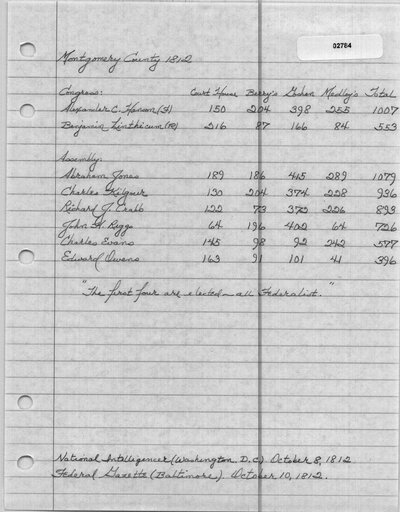 02784
Montgomery County 1812
Congress: Court House Berry's Goshen Medley's Total
Alexander C. Hanson (F) 150 204 398 255 1007
Benjamin Linthicum (R) 216 87 166 84 553
Assembly:
Abraham Jones 189 186 415 289 1079
Charles Kilgour 130 204 374 228 936
Richard J. Crabb 122 73 372 226 893
John H. Riggs 64 196 402 64 726
Charles Evans 145 98 92 242 577
Edward Owens 163 91 101 41 396
"The first four are elected - all Federalist."
National Intelligencer (Washington D.C.) October 8, 1812
Federal Gazette (Baltimore) October 10, 1812.